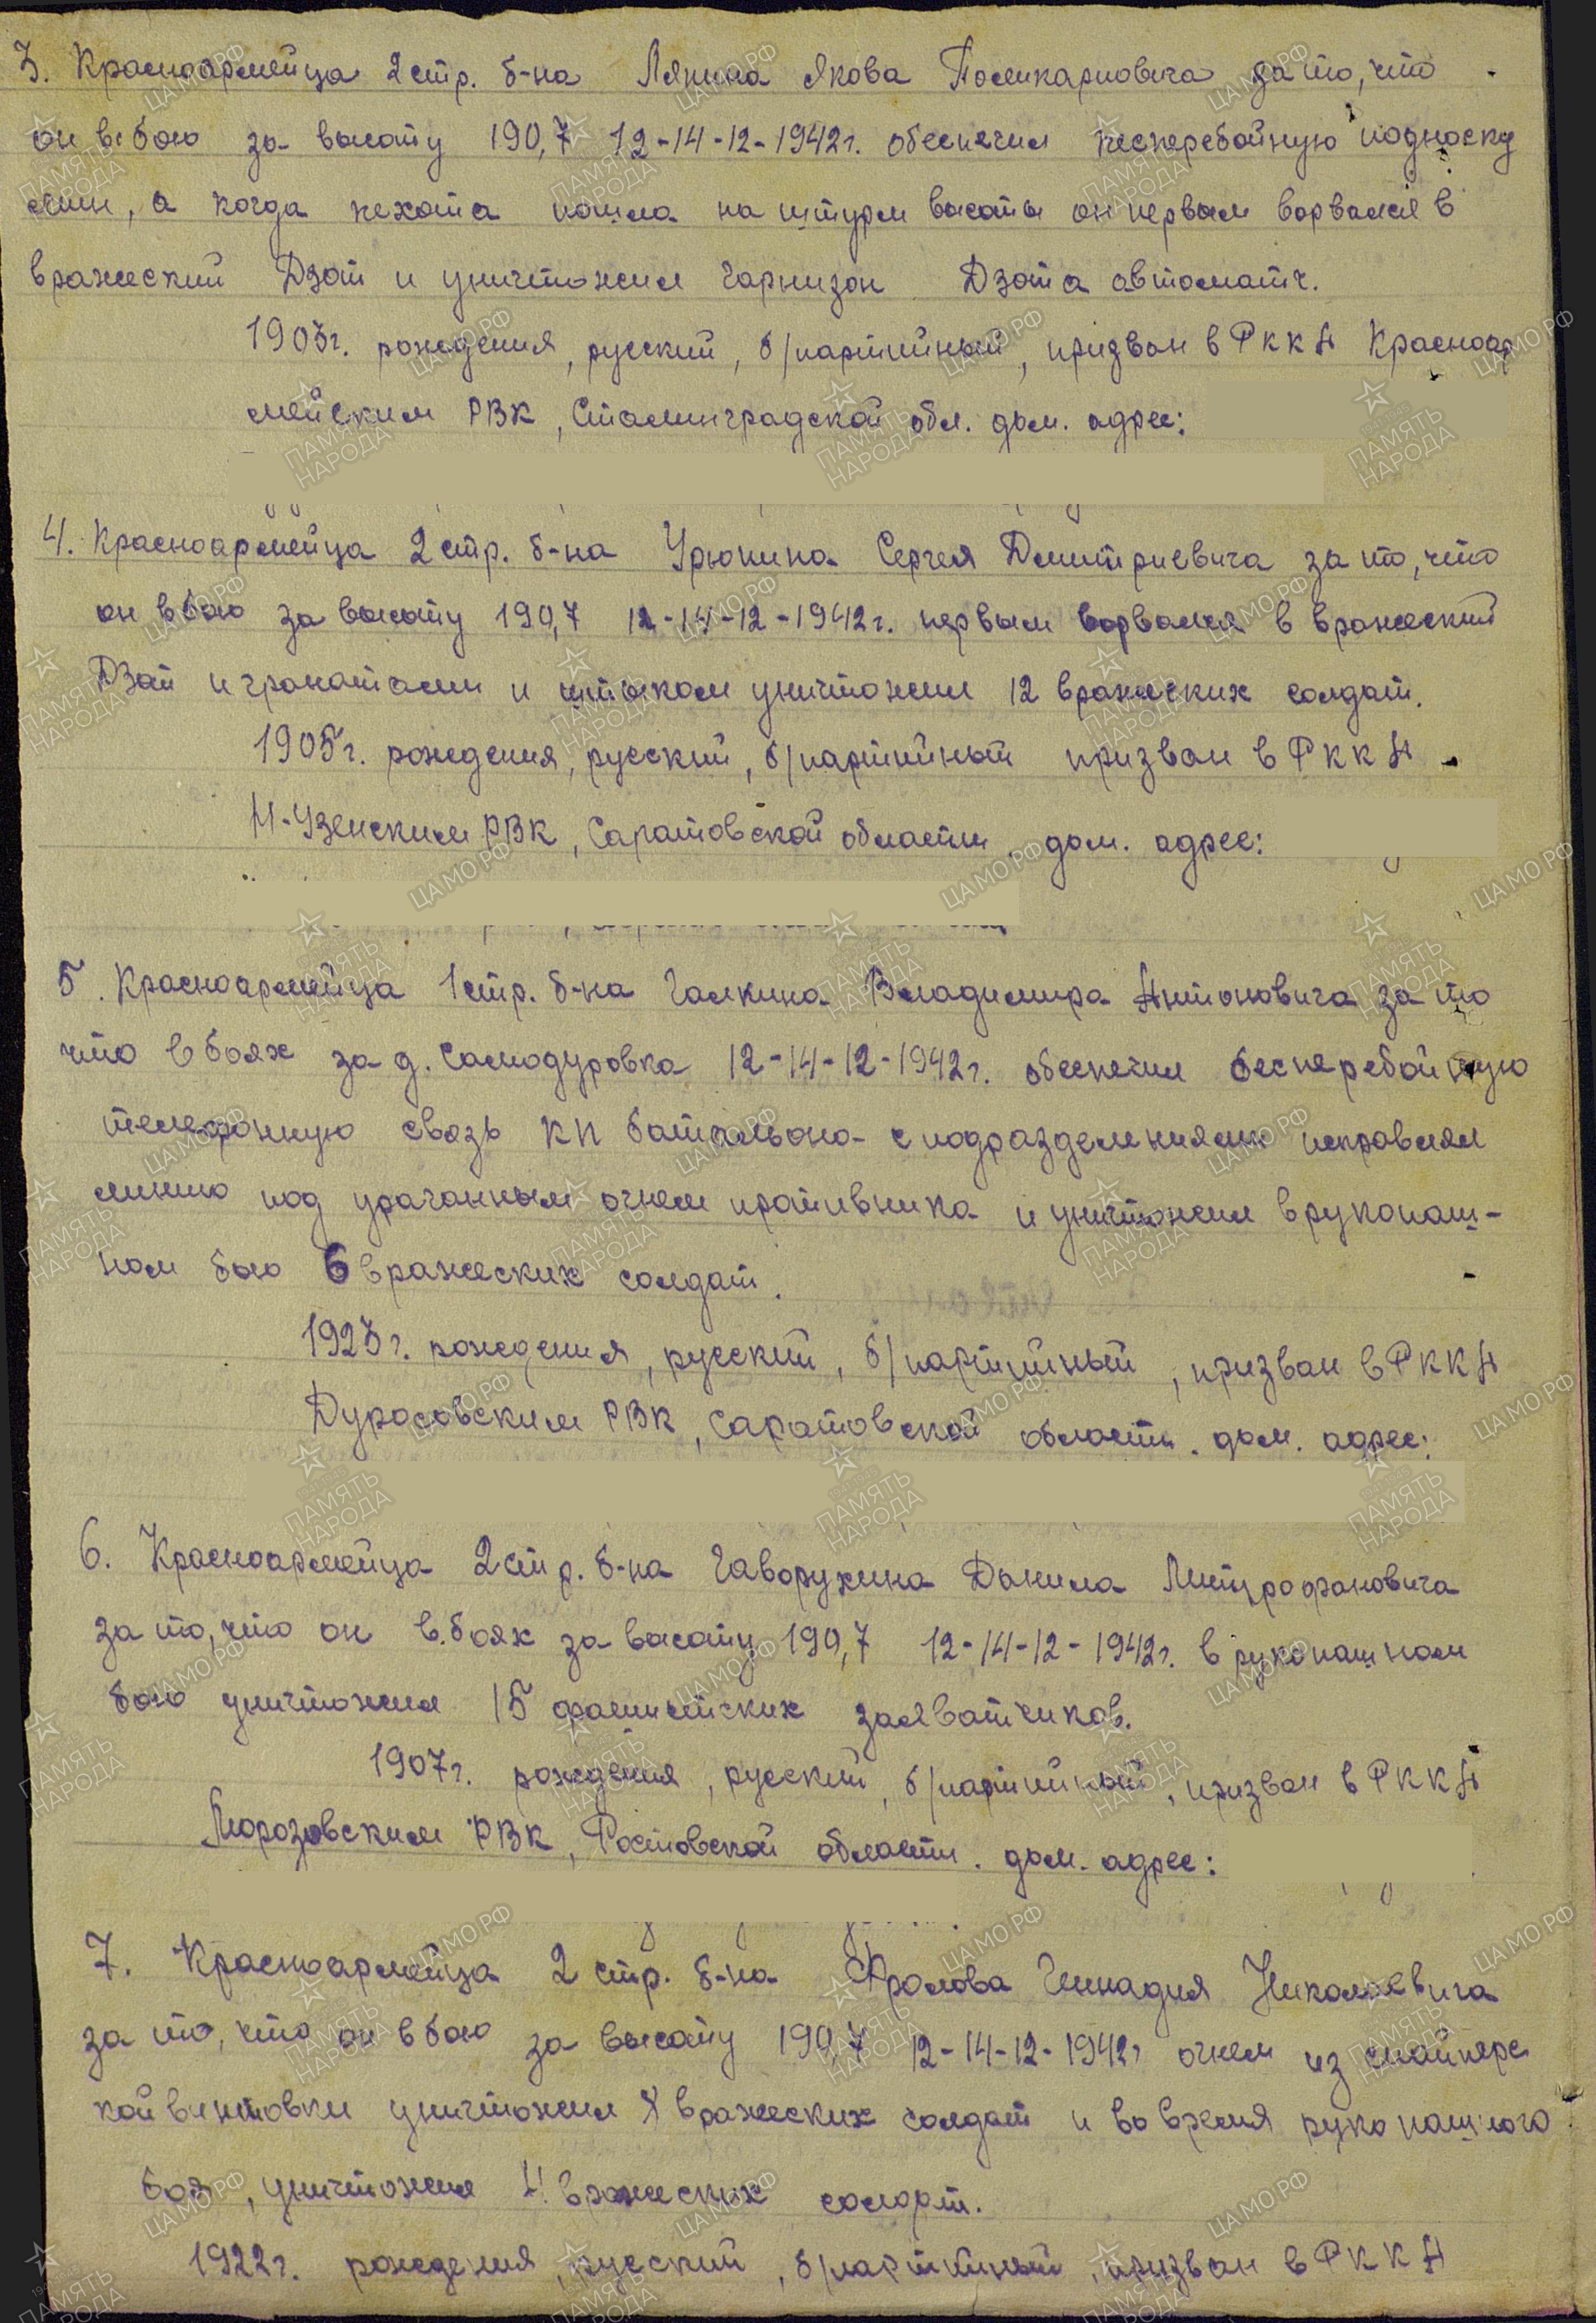 3. Красноармейца 2 стр. б-на Лякина Якова Поликарповича за то, что
он в бою за высоту 190,7 12-14-12-1942г. обеспечил бесперебойную подноску
мин, а когда пехота пошла на штурм высоты он первым ворвался в
вражеский Дзот и уничтожил гарнизон Дзота автомат.
1903г. рождения, русский, б/партийный, призван в РККА Красноар
мейским РВК, Сталинградской обл. дом. адрес:
4. Красноармейца 2 стр. б-на Урюпина Сергея Дмитриевича за то, что
он в бою за высоту 190,7 12-14-12-1942г. первым ворвался в вражеский
Дзот и гранатами и штыком уничтожил 12 вражеских солдат.
1905г. рождения, русский, б/партийный призван в РККА
Н-Узенским РВК, Саратовской области. дом. адрес:
5. Красноармейца 1 стр. б-на Галкина Владимира Антоновича за то
что в боях за д. Самодуровка 12-14-12-1942г. обеспечил бесперебойную
телефонную связь КП батальона с подразделениями исправлял
линию под ураганным огнем противника и уничтожил в рукопаш-
ном бою 6 вражеских солдат.
1923г. рождения, русский, б/партийный, призван в РККА
Дурасовским РВК, Саратовской области. дом. адрес:
6. Красноармейца 2 стр. б-на Гаворухина Данила Митрофановича
за то, что он в боях за высоту 190,7 12-14-12-1942г. в рукопашном
бою уничтожил 15 фашистских захватчиков.
1907г. рождения, русский, б/партийный, призван в РККА
Морозовским РВК, Ростовской области. дом. адрес:
7. Красноармейца 2 стр. б-на Фролова Геннадия Николаевича
за то, что он в бою за высоту 190,7 12-14-12-1942г огнем из снайперс
кой винтовки уничтожил 8 вражеских солдат и во время рукопашного
боя, уничтожил 4 вражеских солдат.
1922г. рождения, русский, б/партийный, призван в РККА